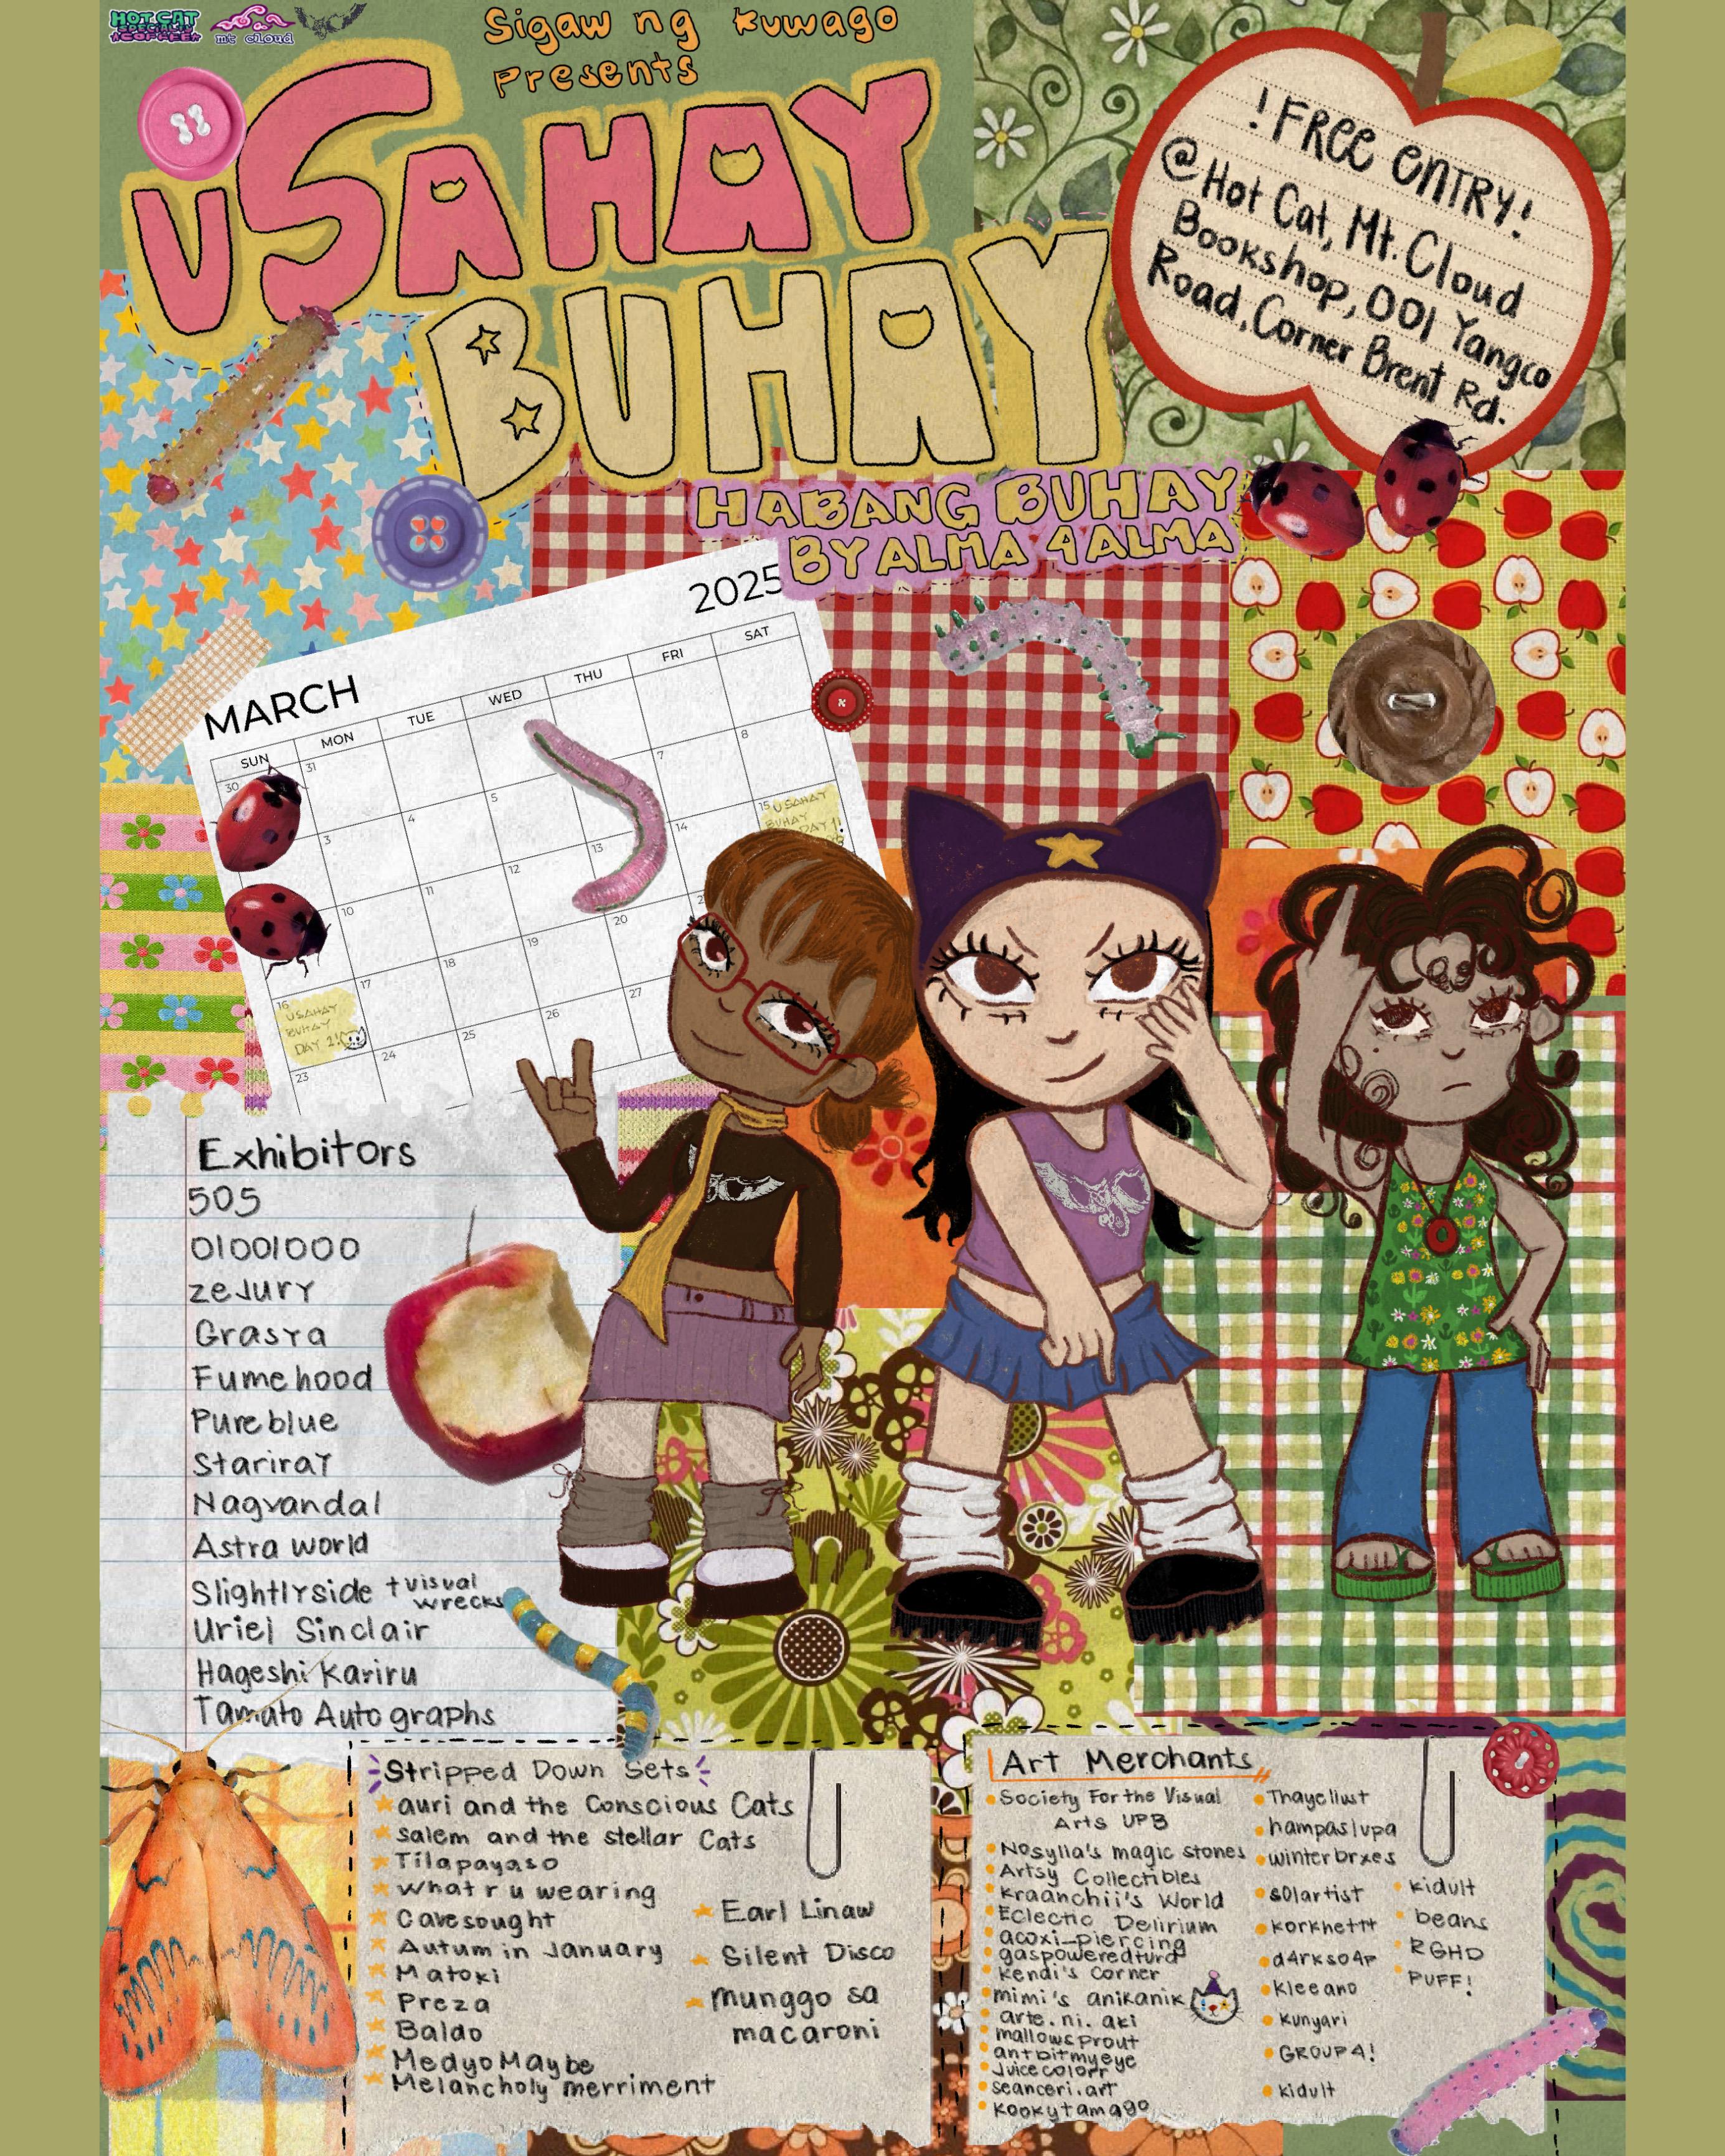 HOT CAT
SPECIALTY
COFFEE
mt cloud
Sigaw ng kuwago
Presents
USAHAY
BUHAY
HABANG BUHAY
BY ALMA 4 ALMA
! FREE ENTRY!
@Hot Cat, Mt. Cloud
Bookshop, 001 Yangco
Road, Corner Brent Rd.
MARCH 2025
SUN MON TUE WED THU FRI SAT
30 31
3 4 5 7 8
10 11 12 13 14 15
USAHAY
BUHAY
DAY 1!
16 17 18 19 20
USAHAY
BUHAY
DAY 2!
23 24 25 26 27
Exhibitors
505
01001000
zeJury
Grasya
Fumehood
Pureblue
Stariray
Nagvandal
Astra world
Slightlyside + visual
wrecks
Uriel Sinclair
Hageshi Kariru
Tamato Autographs
Stripped Down Sets
auri and the Conscious Cats
Salem and the stellar Cats
Tilapayaso
what r u wearing
Cavesought
Autum in January
Matoki
Preza
Baldo
MedyoMaybe
Melancholy merriment
Earl Linaw
Silent Disco
munggo sa
macaroni
Art Merchants
Society For the Visual
Arts UPB
Nosylla's magic stones
Artsy Collectibles
kraanchii's World
Eclectic Delirium
acoxi-piercing
gaspoweredturd
kendi's corner
mimi's anikanik
arte.ni.aki
mallowsprout
antbitmyeye
Juicecolorr
seanceri.art
kookytamago
Thayellust
hampaslupa
winterbrxes
s0lartist
korkhettt
d4rkso4p
kleeano
kunyari
GROUP4!
kidult
kidult
beans
RGHD
PUFF!